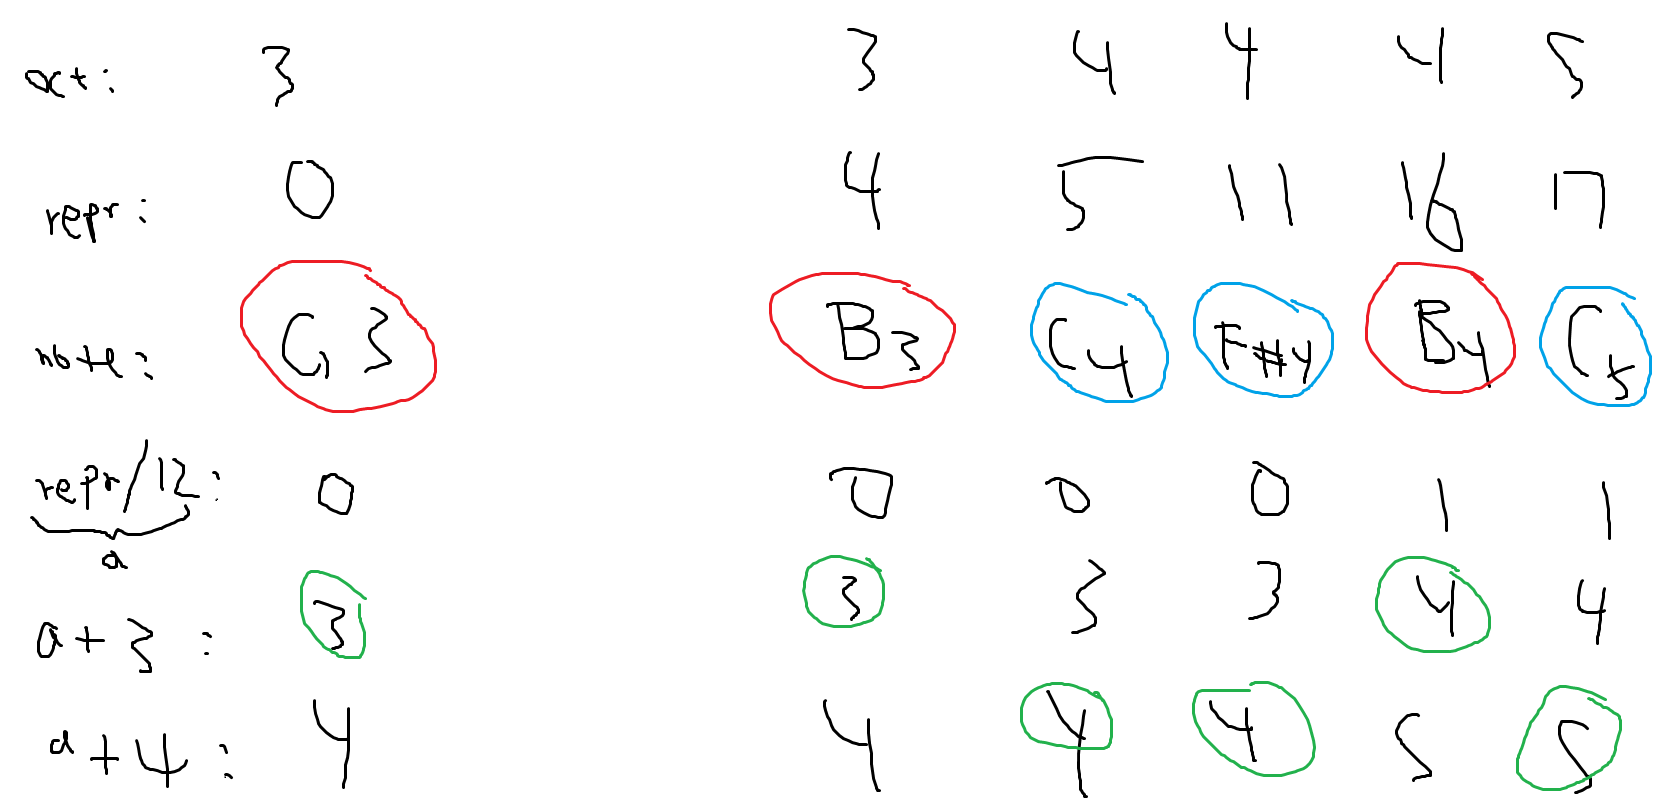 oct: 3 3 4 4 4 5
repr: 0 4 5 11 16 17
note: G3 B3 C4 F#4 B4 C5
repr/12: 0 0 0 0 1 1
a
a+3: 3 3 3 3 4 4
a+4: 4 4 4 4 5 5